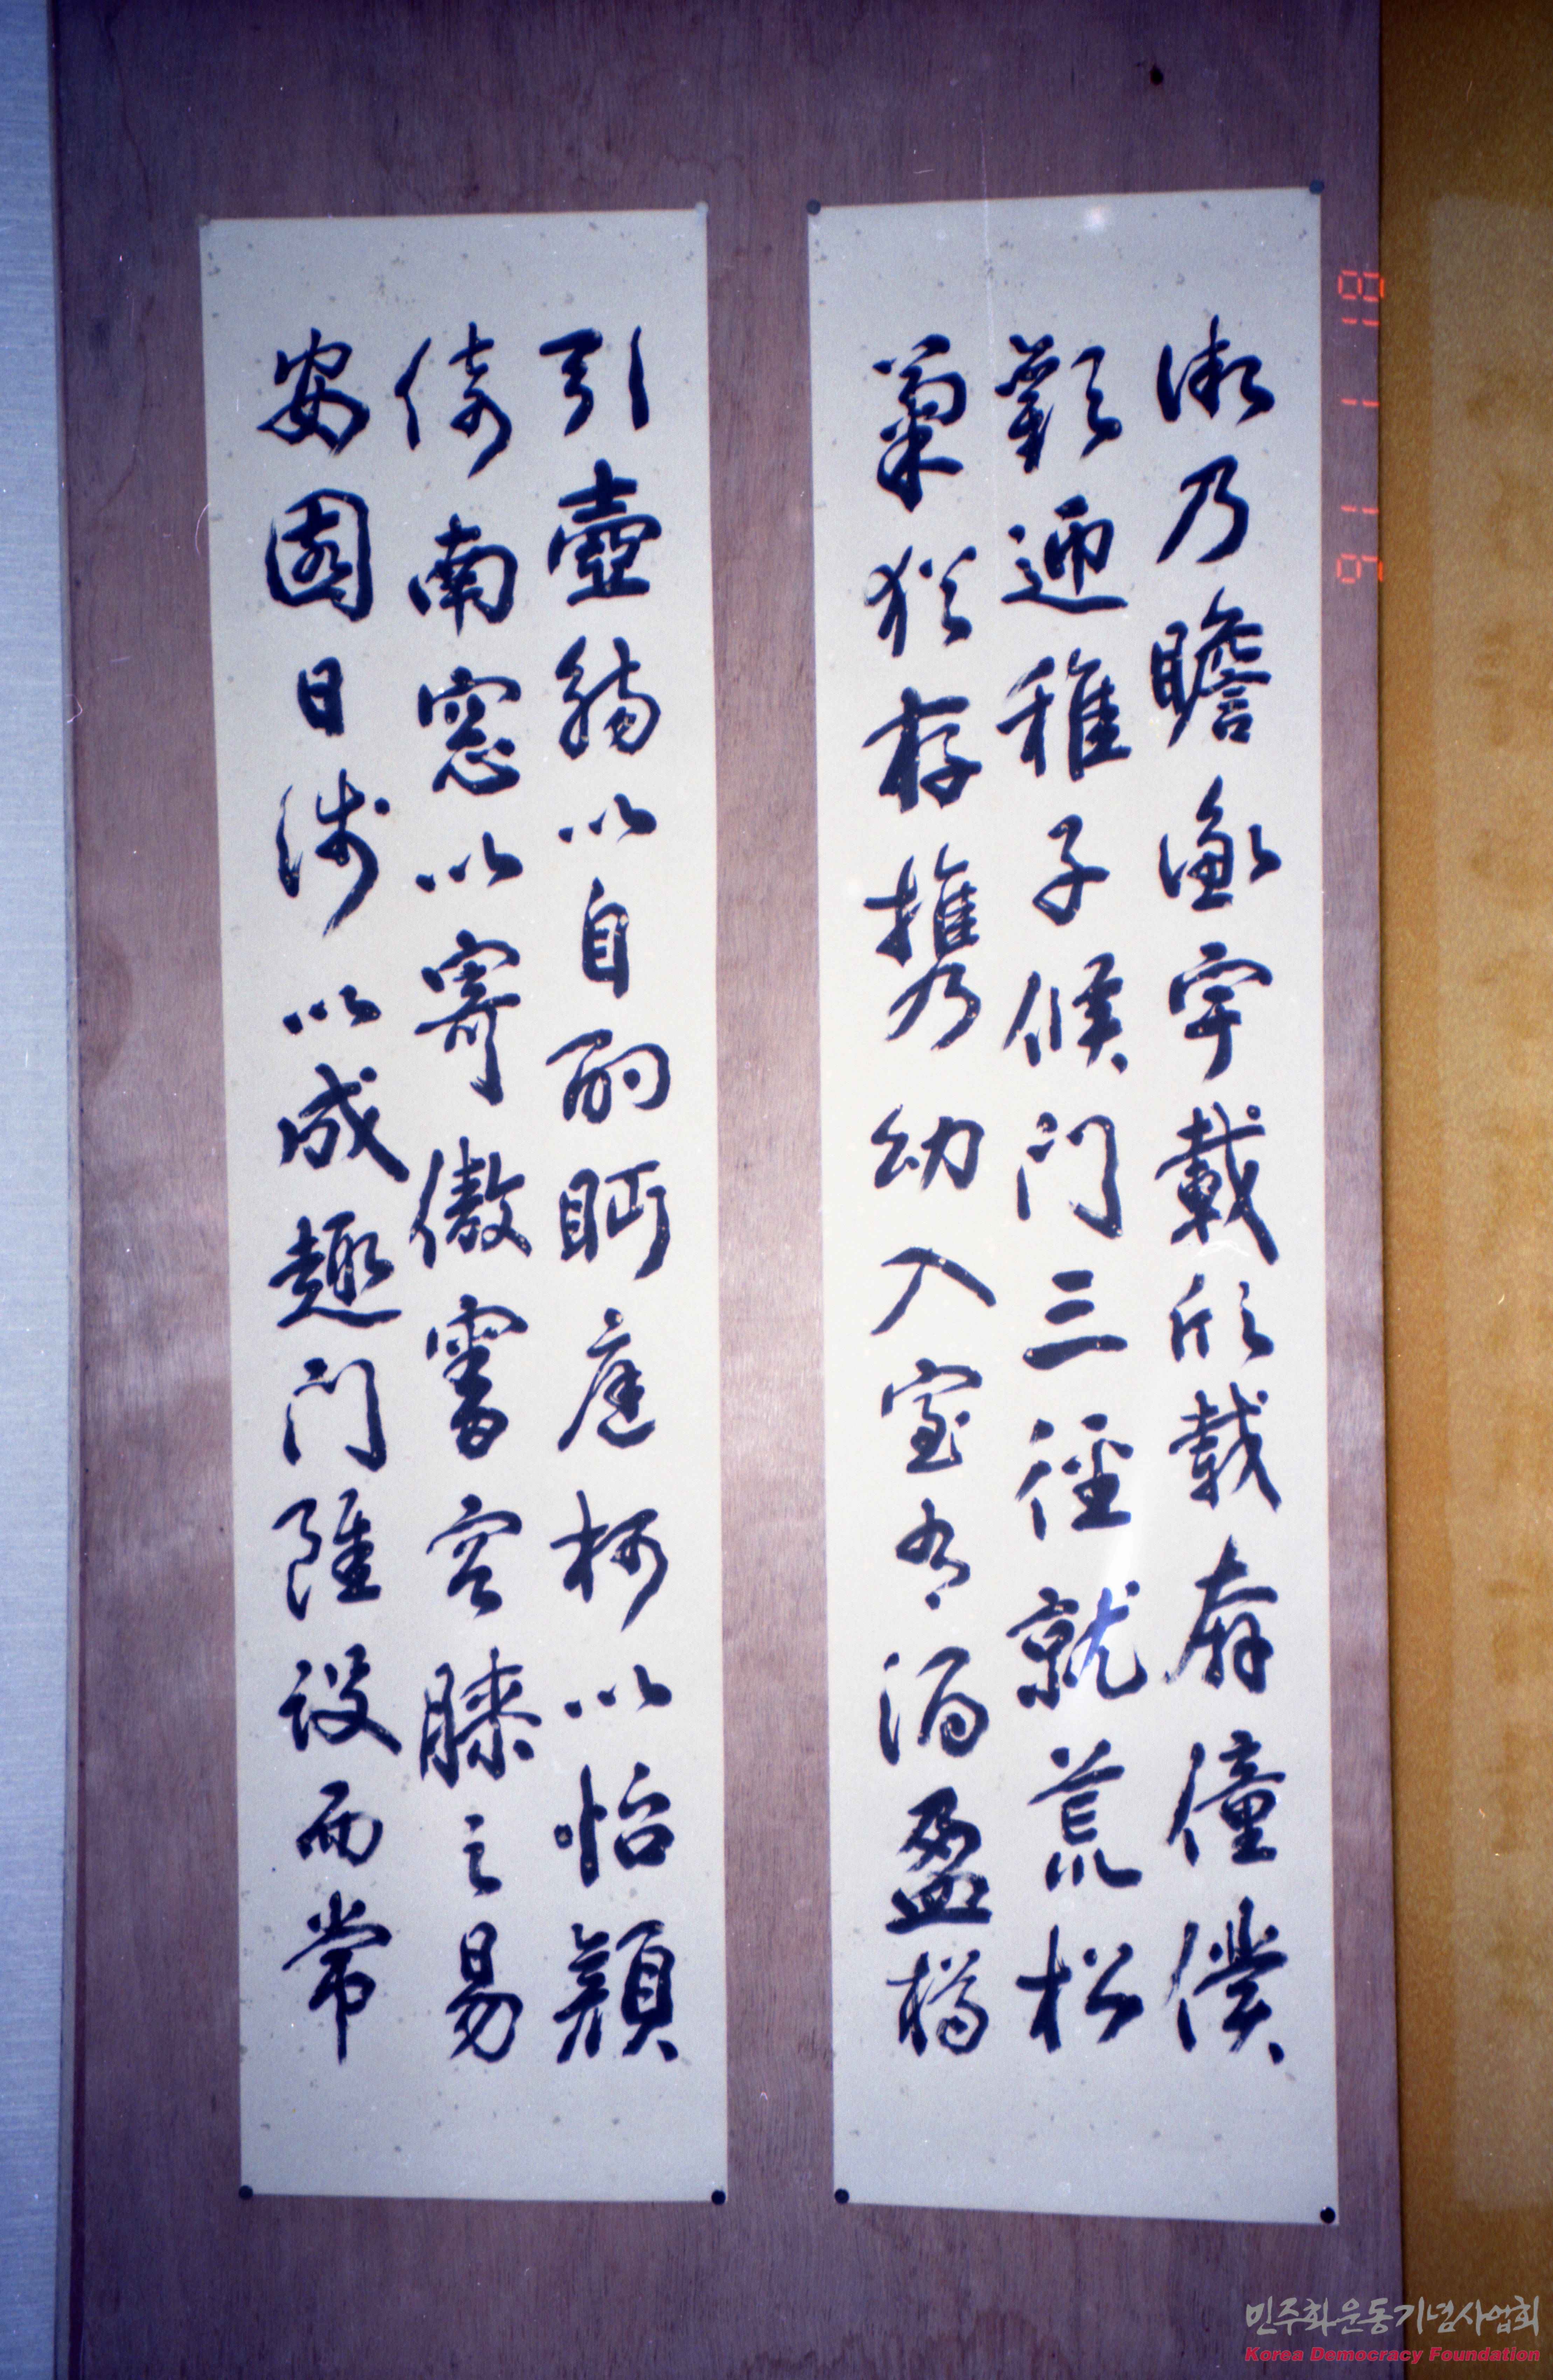 微乃瞻衡宇載欣載奔僮僕
歡迎稚子候門三徑就荒松
菊猶存携幼入室有酒盈樽
引壺觴以自酌眄庭柯以怡顔
倚南窓以寄傲審容膝之易
安園日涉以成趣門雖設而常
민주화운동기념사업회
Korea Democracy Foundation